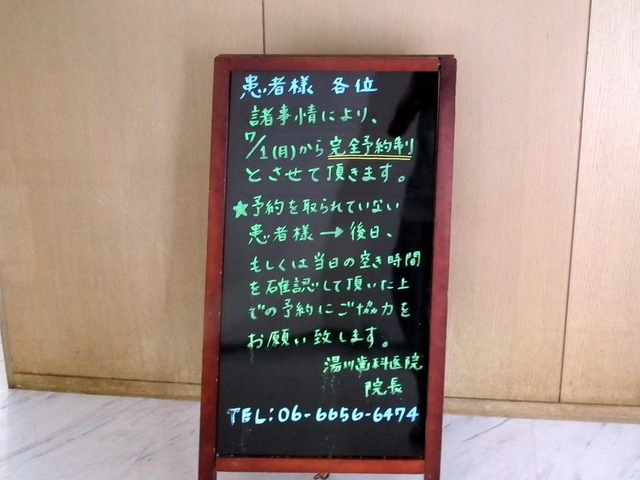 患者様 各位
諸事情により、
7/1(月)から完全予約制
とさせて頂きます。
★予約を取られていない
患者様→後日、
もしくは当日の空き時間
を確認して頂いた上
での予約にご協力を
お願い致します。
湯川歯科医院
院長
TEL:06-6656-6474